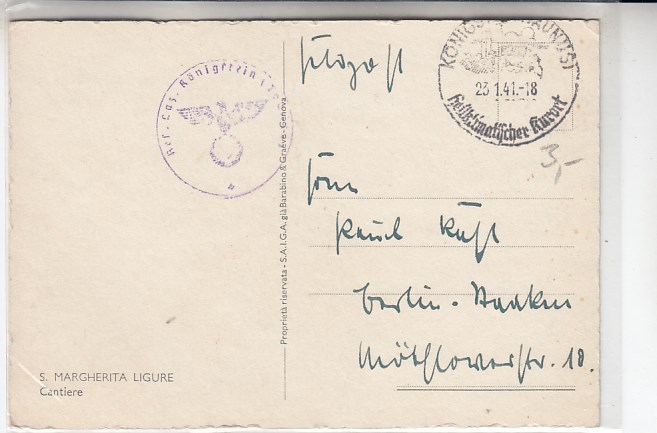 Feldpost
KÖNIGSTEIN (TAUNUS)
23.1.41.-18
Heilklimatischer Kurort
Res. Laz. Königstein
3,-
Paul
Berlin-Staaken
str. 18.
Proprietà riservata - S.A.I.G.A. già Barabino & Graeve - Genova
S. MARGHERITA LIGURE
Cantiere